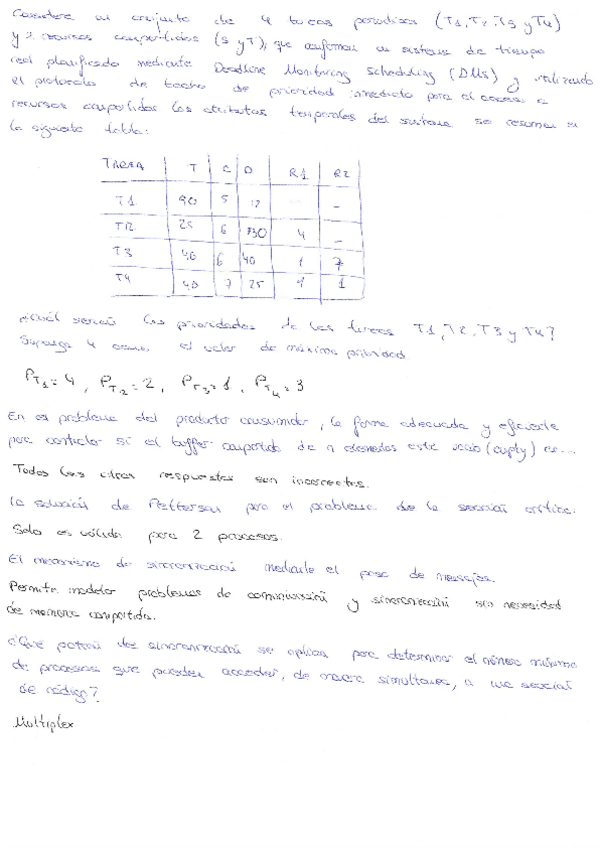 Considere un conjunto de 4 tareas periódicas (T1, T2, T3 y T4)
y 2 recursos compartidos (S y T), que conforman un sistema de tiempo
real planificado mediante Deadline Monitoring Scheduling (DMS) y utilizando
el protocolo de techo de prioridad inmediato para el acceso a
recursos compartidos los atributos temporales del sistema se resumen en
la siguiente tabla:
TAREA T C D R1 R2
T1 90 5 12 – –
T2 25 6 30 4 –
T3 40 6 40 1 7
T4 40 7 25 1 1
¿Cuál serían las prioridades de las tareas T1, T2, T3 y T4?
Suponga 4 como el valor de máxima prioridad
PT1=4, PT2=2, PT3=1, PT4=3
En el problema del productor consumidor, la forma adecuada y eficiente
para controlar si el buffer compartido de n elementos está vacío (empty) es...
Todas las otras respuestas son incorrectas.
La solución de Petterson para el problema de la sección crítica:
Solo es válida para 2 procesos.
El mecanismo de sincronización mediante el paso de mensajes.
Permite modelar problemas de comunicación y sincronización sin necesidad
de memoria compartida.
¿Qué patrón de sincronización se aplica para determinar el número máximo
de procesos que pueden acceder, de manera simultanea, a una sección
de código?
Multiplex